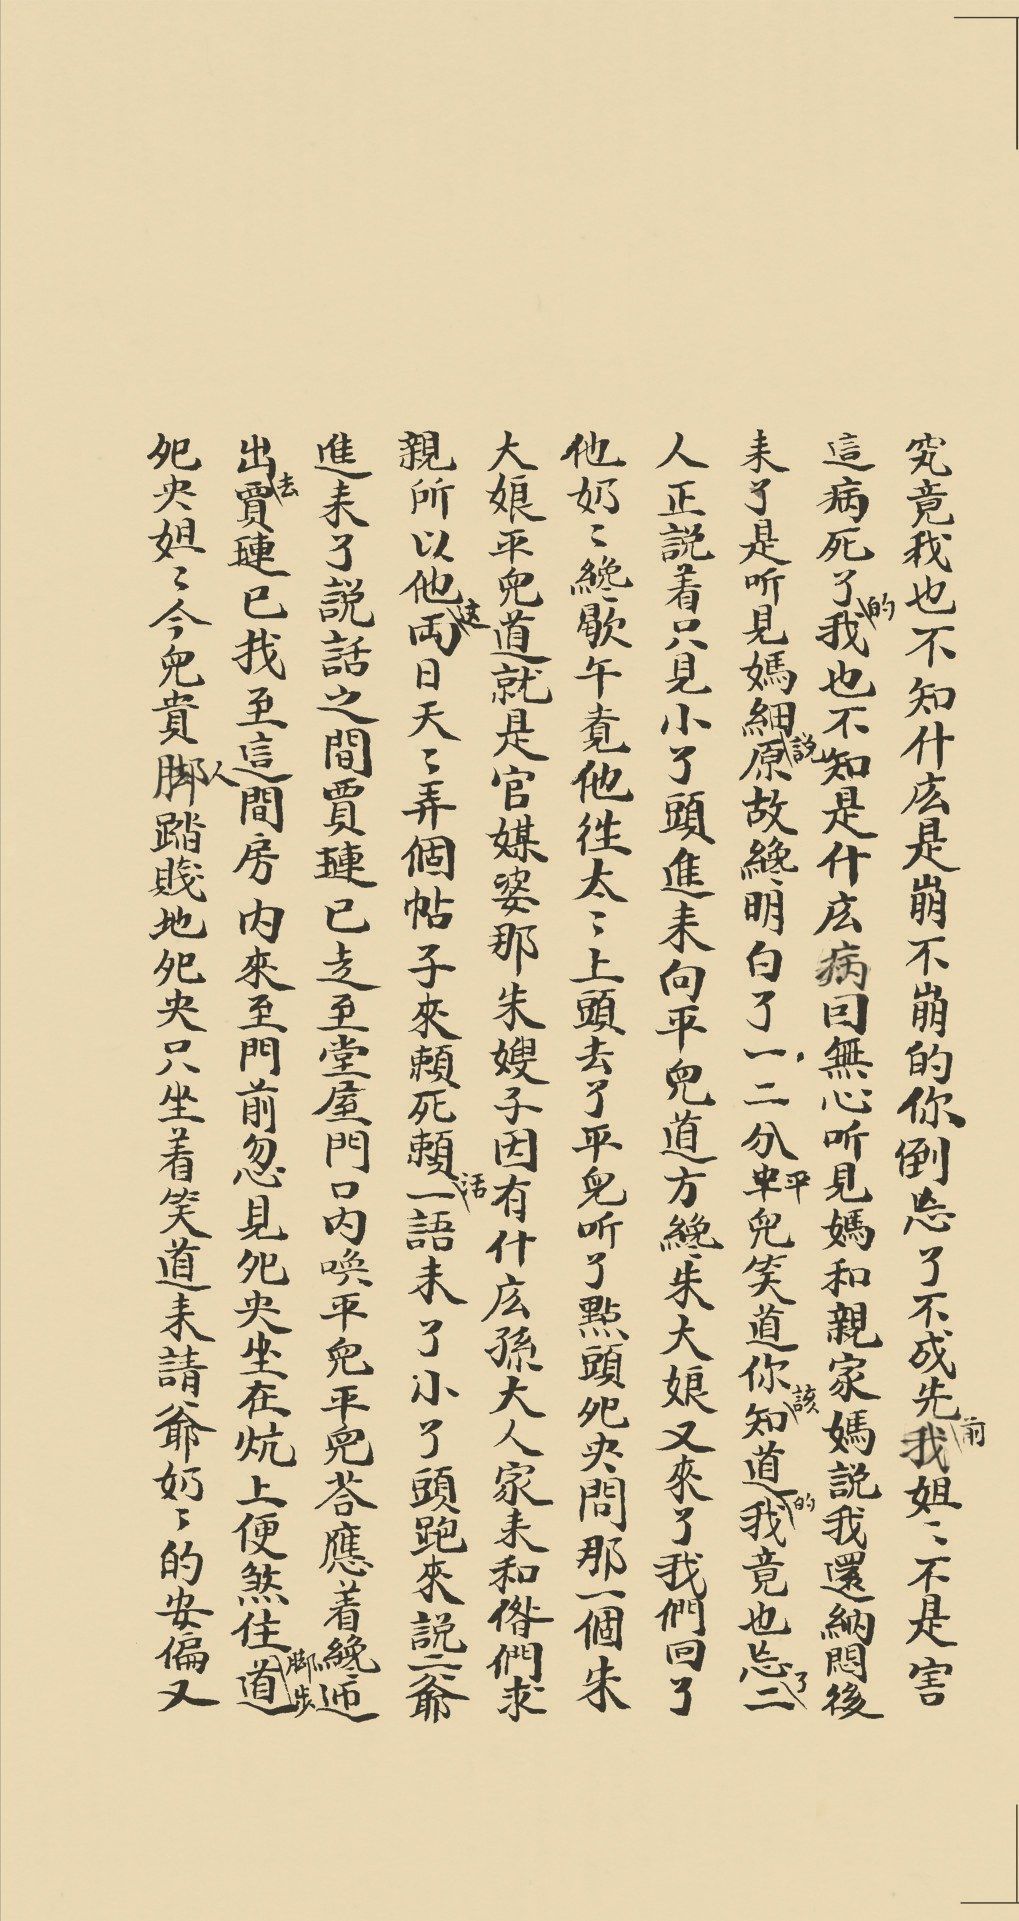 究竟我也不知什庅是崩不崩的你倒忘了不成先前我姐〻不是害
這病死了的我也不知是什庅病曰無心听見媽和親家媽説我還納悶後
耒了是听見媽細説原故纔明白了一二分平兒笑道你該知道的我竟也忘了二
人正説着只見小了頭進耒向平兒道方纔朱大娘又來了我們回了
他奶〻纔歇午覔他徃太〻上頭去了平兒听了點頭夗央問那一個朱
大娘平兒道就是官媒婆那朱嫂子因有什庅孫大人家耒和偺們求
親所以他这両日天〻弄個帖子來頼死頼活一語耒了小了頭跑來説二爺
進耒了説話之間賈璉已走至堂屋門口内喚平兒平兒荅應着纔迊
出去賈璉已找至這間房内來至門前忽見夗央坐在炕上便煞住脚步道
夗央姐〻今兒貴人脚踏賤地夗央只坐着笑道耒請爺奶〻的安偏又